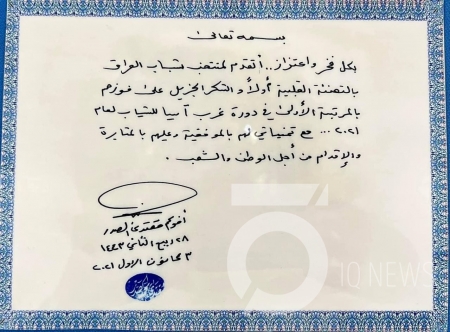 بسمه تعالى
بكل فخر واعتزاز.. أتقدم لمنتخب شباب العراق
بالتهنئة القلبية أولاً والشكر الجزيل على فوزهم
بالمرتبة الأولى في دورة غرب آسيا للشباب لعام
٢٠٢١ ... مع تمنياتي لهم بالموفقية وعليهم بالمثابرة
والإقدام من أجل الوطن والشعب.
أخوكم مقتدى الصدر
٢٨ ربيع الثاني ١٤٤٣
٣ كانون الاول ٢٠٢١
IQ NEWS